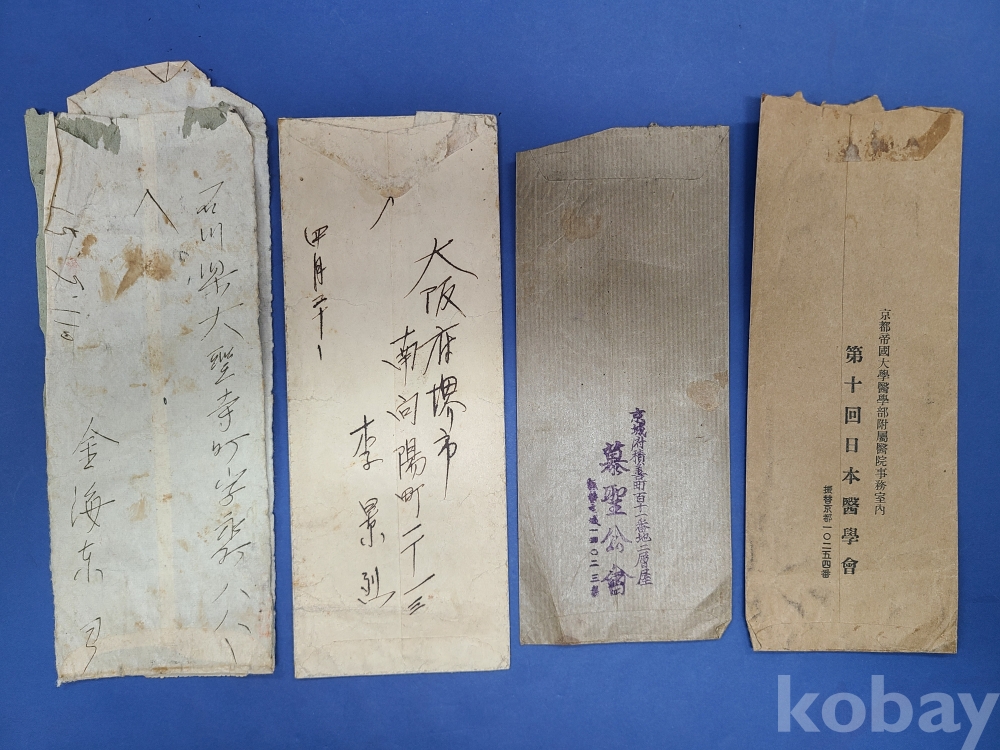 石川県大聖寺町字
金海东
大阪府堺市
南向陽町二丁一三
李景烈
四月二十
京城府積善町百十一番地二層屋
慕聖公會
京都帝國大學醫學部附屬醫院事務室內
第十回日本醫學會
振替京都一〇二五四番
kobay